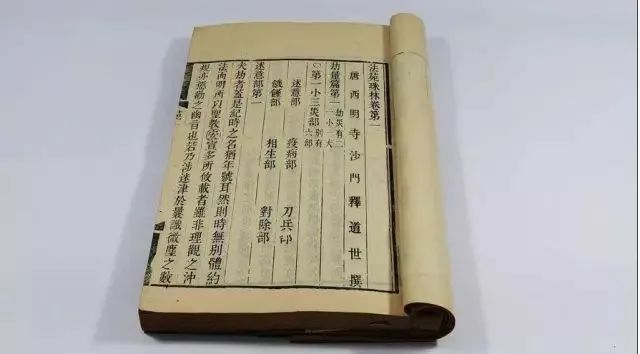 法苑珠林卷第一
唐西明寺沙門釋道世撰
劫量篇第一 劫災有二 一小 大
○第一小三災部 別有六部
述意部 疫病部 刀兵部
饑饉部 相生部 對除部
述意部第一
夫劫者蓋是記時之名猶年號耳然則時無別體約
法而明所以聖教宣多所攸載者雖非理觀之沖
規亦勸之幽旨也若乃涉迷津於曩識微塵之數